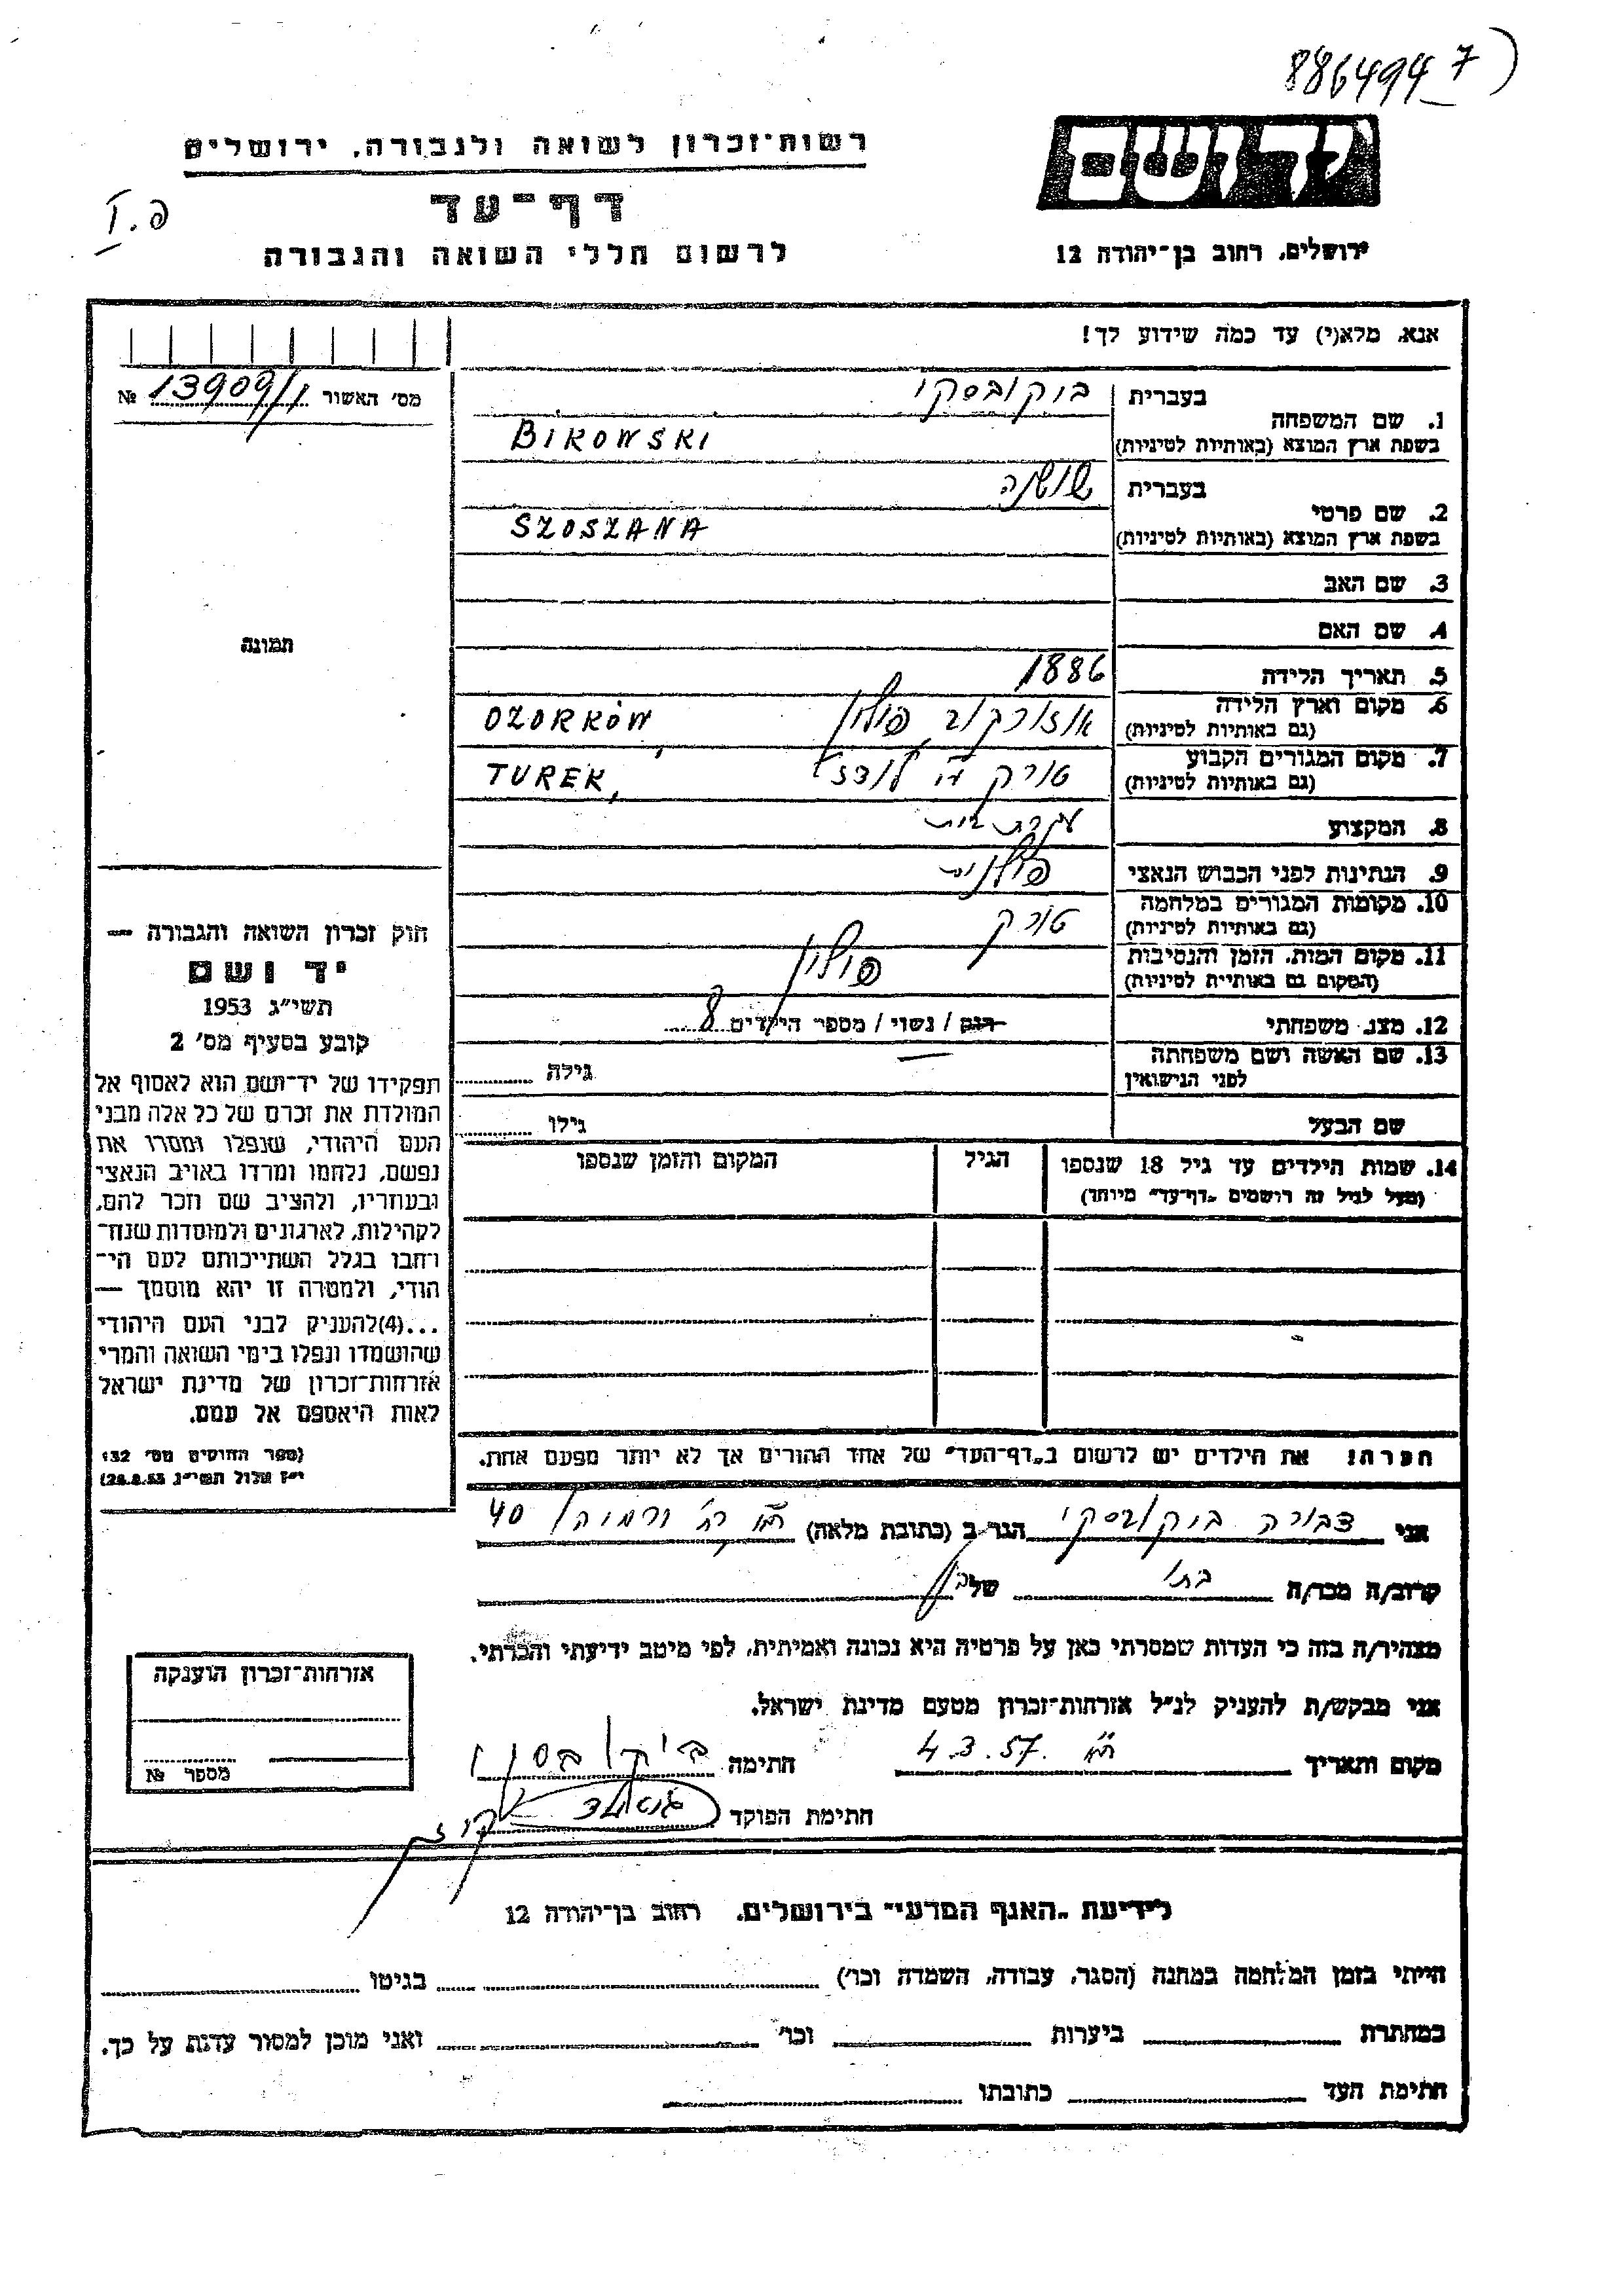 886494 7)
רשות־זכרון לשואה ולגבורה, ירושלים
יד ושם
דף־עד
פ. I
לרשום חללי השואה והגבורה
ירושלים, רחוב בן־יהודה 12
אנא, מלא(י) עד כמה שידוע לך!
מס׳ האשור 13909/1 №
1. שם המשפחה
בעברית ביקובסקי
בשפת ארץ המוצא (באותיות לטיניות) BIKOWSKI
2. שם פרטי
בעברית שושנה
בשפת ארץ המוצא (באותיות לטיניות) SZOSZANA
3. שם האב
4. שם האם
תמונה
5. תאריך הלידה 1886
6. מקום וארץ הלידה
(גם באותיות לטיניות) אוזורקוב, פולין OZORKÓW
7. מקום המגורים הקבוע
(גם באותיות לטיניות) טורק לודז TUREK,
8. המקצוע עקרת בית
9. הנתינות לפני הכבוש הנאצי פולנית
10. מקומות המגורים במלחמה
(גם באותיות לטיניות) טורק
11. מקום המות, הזמן והנסיבות
(המקום גם באותיית לטיניות) פולין
12. מצב משפחתי רווק / נשוי / מספר הילדים 8
13. שם האשה ושם משפחתה
לפני הנישואין — גילה
שם הבעל גילו
14. שמות הילדים עד גיל 18 שנספו
(מעל לגיל זה רושמים „דף־עד״ מיוחד)
הגיל
המקום והזמן שנספו
חוק זכרון השואה והגבורה —
יד ושם
תשי״ג 1953
קובע בסעיף מס׳ 2
תפקידו של יד־ושם הוא לאסוף אל
המולדת את זכרם של כל אלה מבני
העם היהודי, שנפלו ומסרו את
נפשם, נלחמו ומרדו באויב הנאצי
ובעוזריו, ולהציב שם וזכר להם,
לקהילות, לארגונים ולמוסדות שנח־
רחבו בגלל השתייכותם לעם הי־
הודי, ולמטרה זו יהא מוסמך —
...(4)להעניק לבני העם היהודי
שהושמדו ונפלו בימי השואה והמרי
אזרחות־זכרון של מדינת ישראל
לאות היאספם אל עמם.
(ספר החוקים מס׳ 132
י״ז אלול תשי״ג 28.8.53)
הערה! את הילדים יש לרשום ב„דף־העד״ של אחד ההורים אך לא יותר מפעם אחת.
אני דבורה ביקובסקי הגר ב (כתובת מלאה) 40
קרוב/ה מכר/ה בתו של
מצהיר/ה בזה כי העדות שמסרתי כאן על פרטיה היא נכונה ואמיתית, לפי מיטב ידיעתי והכרתי.
אני מבקש/ת להעניק לנ״ל אזרחות־זכרון מטעם מדינת ישראל.
מקום ותאריך 4.3.57. חתימה ביקובסקי
חתימת הפוקד
אזרחות־זכרון הוענקה
מספר №
לידיעת „האגף המדעי״ בירושלים, רחוב בן־יהודה 12
הייתי בזמן המלחמה במחנה (הסגר, עבודה, השמדה וכו׳) בגיטו
במחתרת ביערות וכו׳ ואני מוכן למסור עדות על כך.
חתימת העד כתובתו